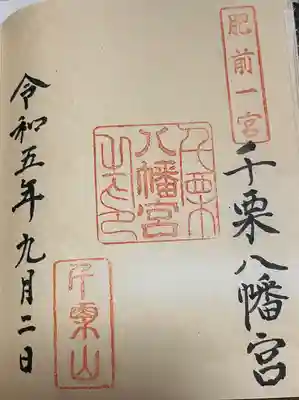 肥前一宮
千栗八幡宮
千栗
八幡宮
之印
千栗山
令和五年九月二日